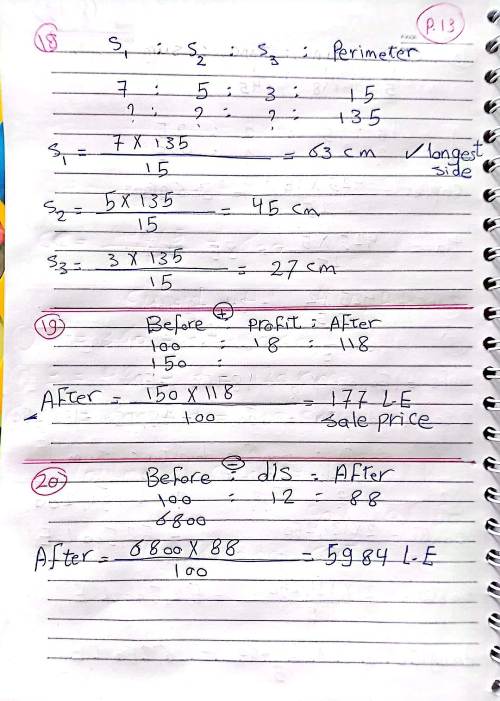 P.13
18 S1 : S2 : S3 : Perimeter
7 : 5 : 3 : 15
? : ? : ? : 135
S1 = 7 X 135 / 15 = 63 cm ✓ longest side
S2 = 5 X 135 / 15 = 45 cm
S3 = 3 X 135 / 15 = 27 cm
19 Before + profit : After
100 : 18 : 118
150 :
After = 150 X 118 / 100 = 177 L.E
sale price
20 Before - dis = After
100 : 12 = 88
6800
After = 6800 X 88 / 100 = 5984 L.E